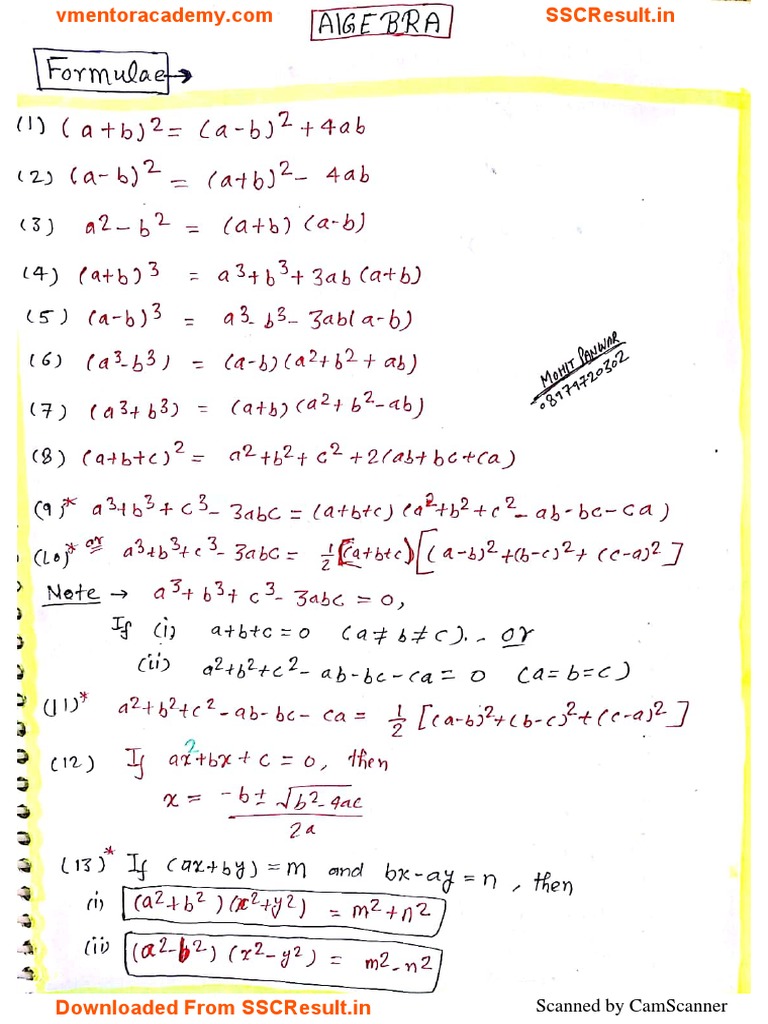 vmentoracademy.com
AlGEBRA
SSCResult.in
Formulae→
(1) (a+b)² = (a-b)² + 4ab
(2) (a-b)² = (a+b)² - 4ab
(3) a² - b² = (a+b) (a-b)
(4) (a+b)³ = a³+b³+3ab (a+b)
(5) (a-b)³ = a³-b³-3ab(a-b)
(6) (a³-b³) = (a-b)(a²+b²+ab)
MOHIT PANWAR
08979720302
(7) (a³+b³) = (a+b)(a²+b²-ab)
(8) (a+b+c)² = a²+b²+c²+2(ab+bc+ca)
(9)* a³+b³+c³-3abc = (a+b+c) (a²+b²+c²-ab-bc-ca)
(10)* or a³+b³+c³-3abc = 1/2 (a+b+c) [(a-b)²+(b-c)²+(c-a)²]
Note → a³+b³+c³-3abc = 0,
If (i) a+b+c=0 (a≠b≠c). - or
(ii) a²+b²+c²-ab-bc-ca=0 (a=b=c)
(11)* a²+b²+c²-ab-bc-ca = 1/2 [(a-b)²+(b-c)²+(c-a)²]
(12) If ax²+bx+c=0, then
x = -b±√b²-4ac
2a
(13)* If (ax+by)=m and bx-ay=n, then
(i) (a²+b²)(x²+y²) = m²+n²
(ii) (a²-b²)(x²-y²) = m²-n²
Downloaded From SSCResult.in
Scanned by CamScanner